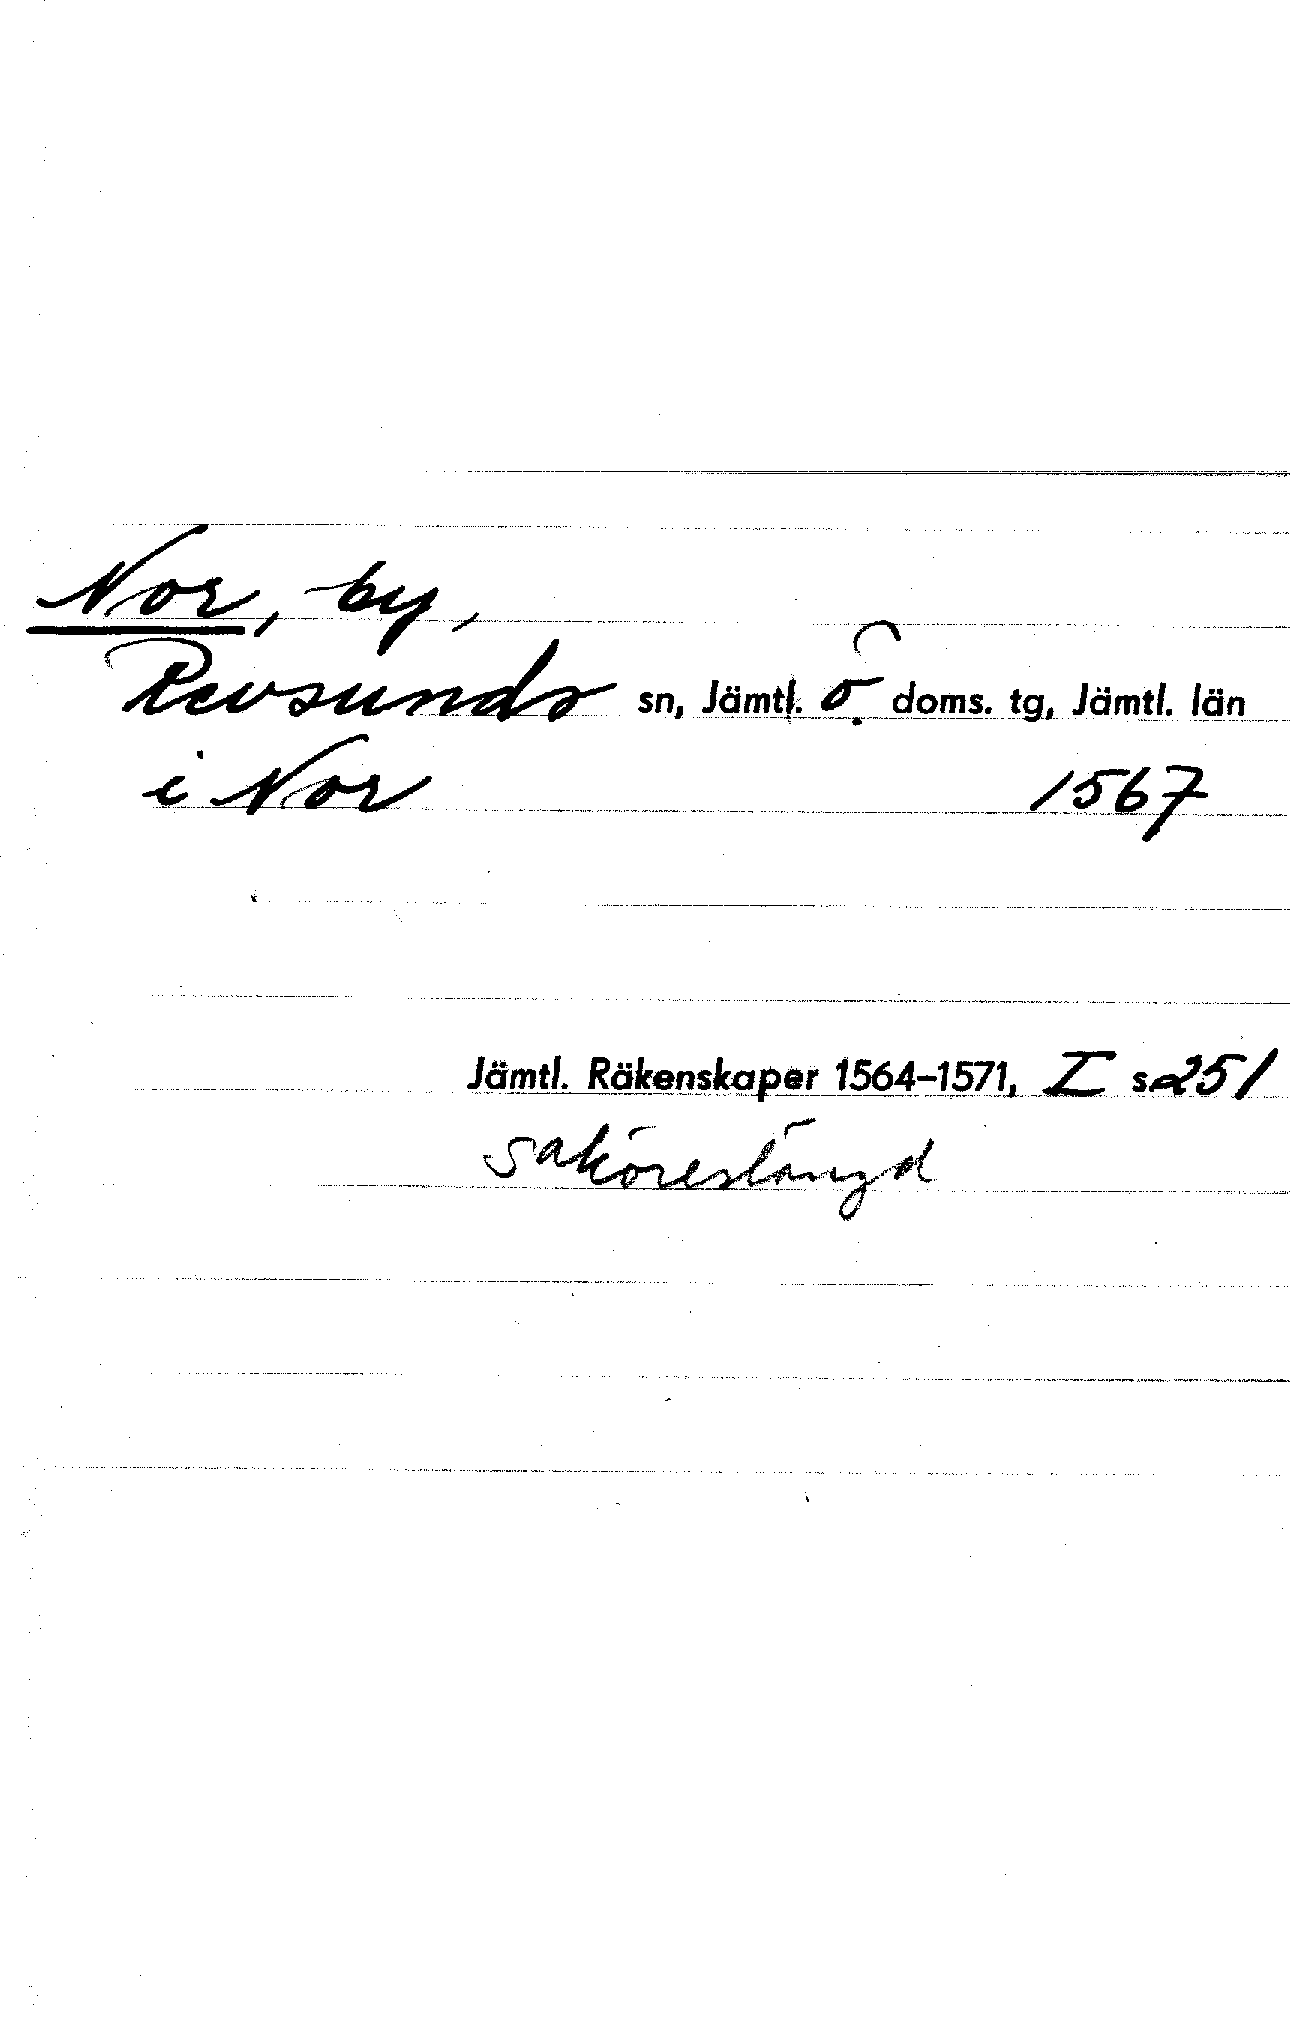 Nor, by,
Revsunds sn, Jämtl. ö. doms. tg, Jämtl. län
i Nor 1567
Jämtl. Räkenskaper 1564–1571, I s 251
saköreslängd